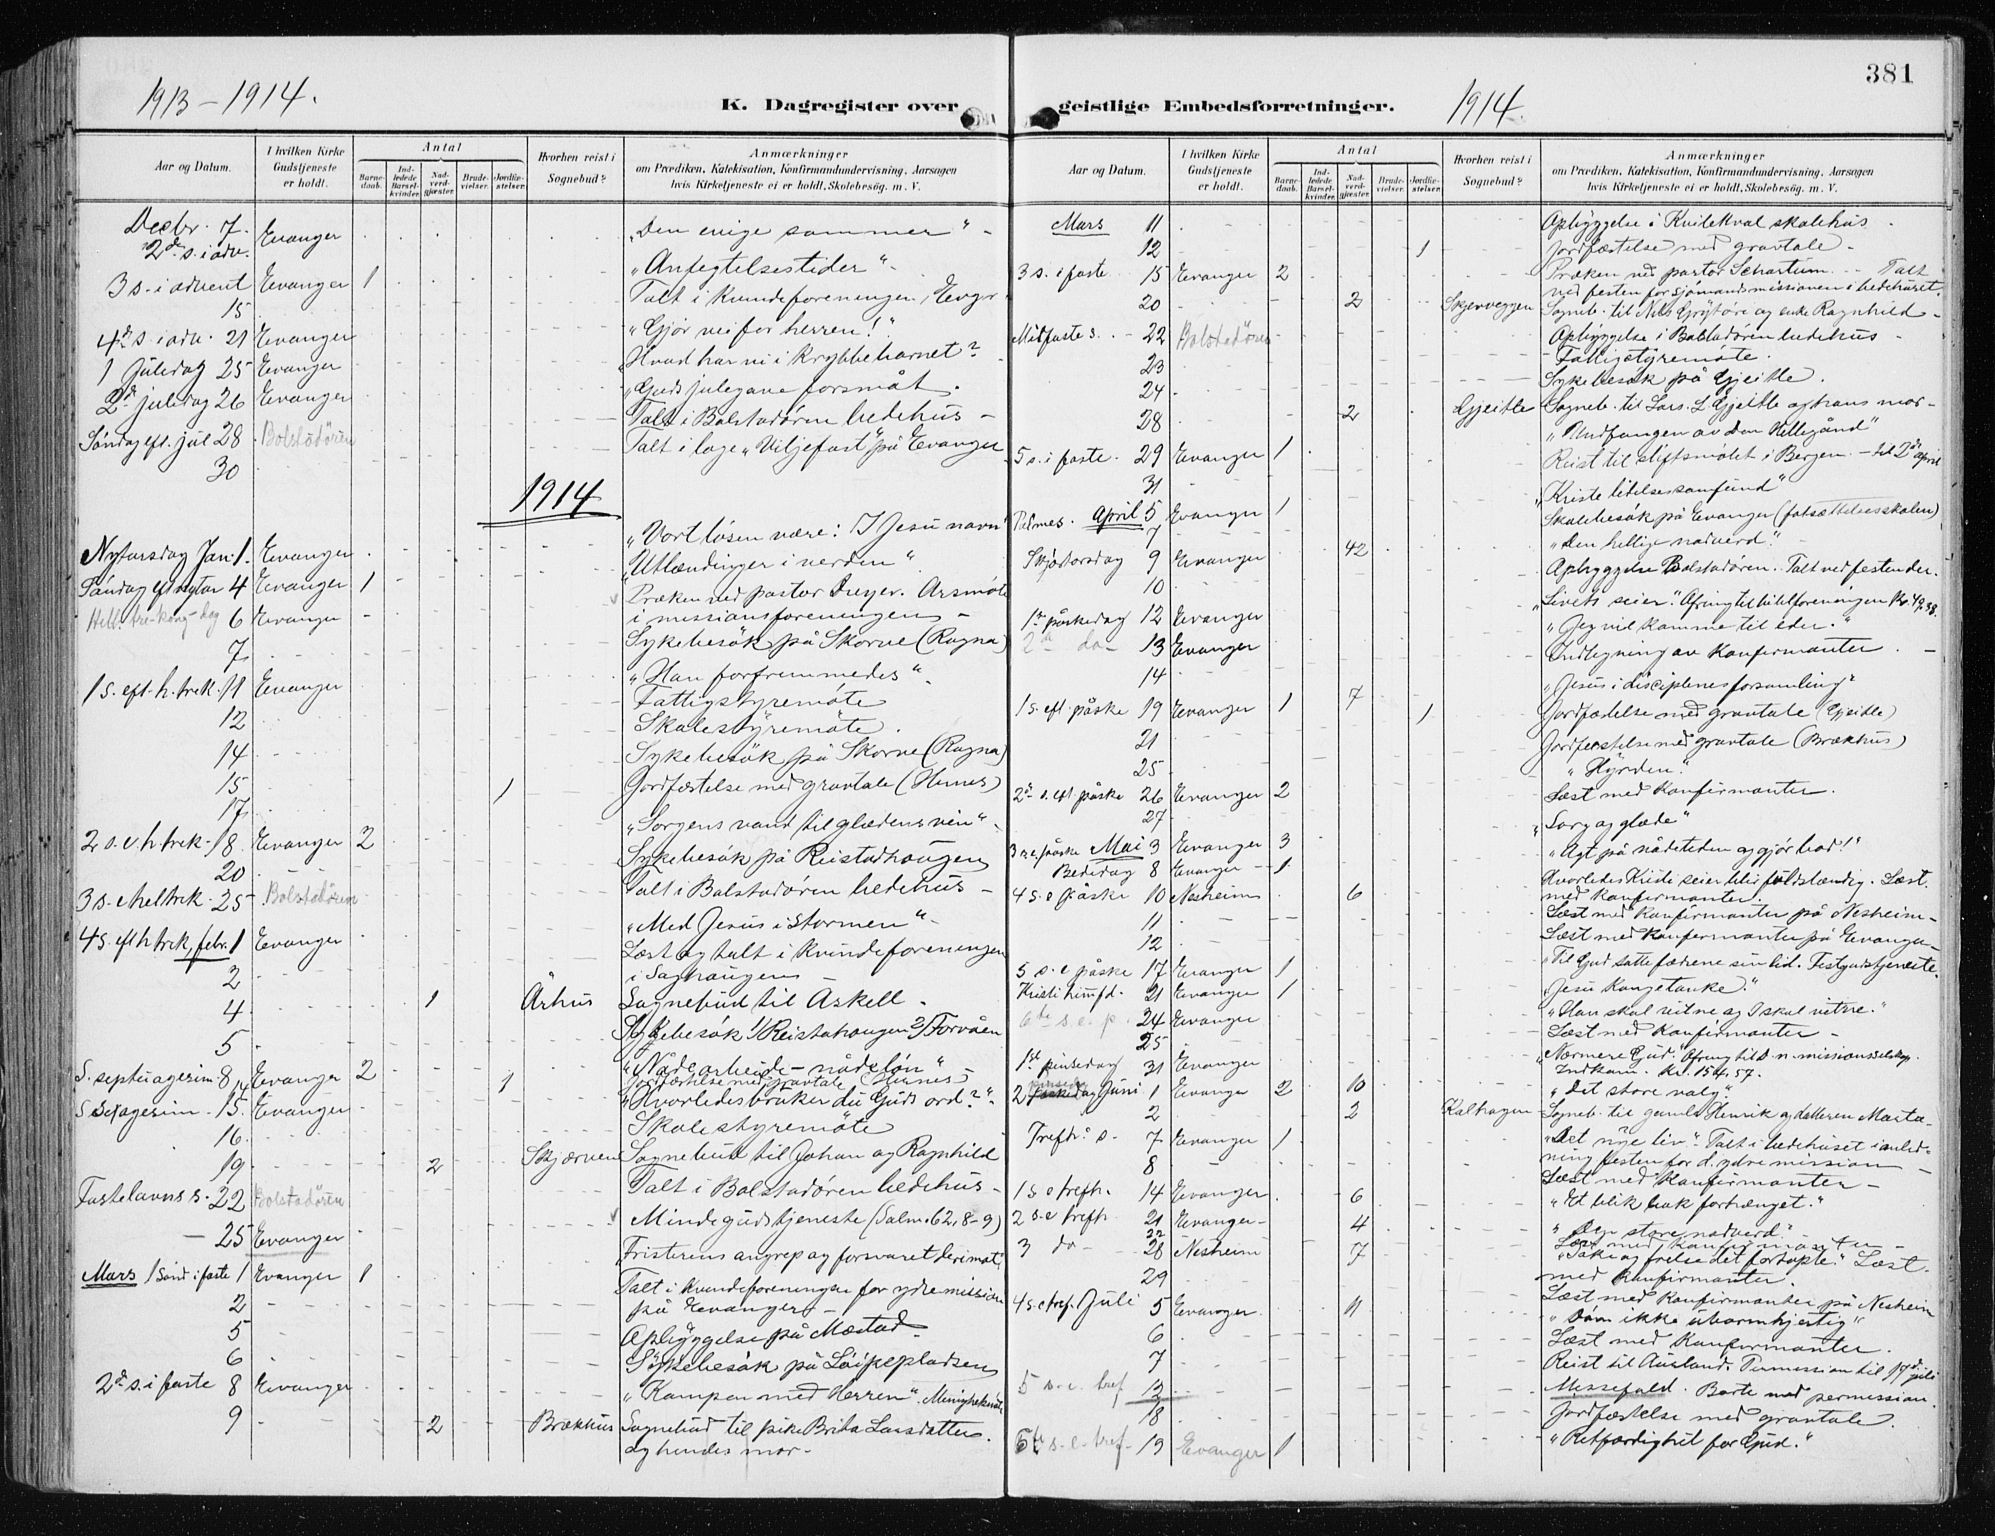 381
1913-1914.
K. Dagregister over geistlige Embedsforretninger.
1914.
Aar og Datum.
I hvilken Kirke Gudstjeneste er holdt.
Antal
Barnedaab.
Indledede Barselkvinder.
Nadverdgjester.
Brudevielser.
Jordfæstelser.
Hvorhen reist i Sognebud?
Anmærkninger
om Prædiken, Katekisation, Konfirmandundervisning, Aarsagen
hvis Kirketjeneste ei er holdt, Skolebesøg. m. V.
Decbr. 7. 2den s. i adv. Evanger „Den evige sommer“
3 s. i advent Evanger 1 „Anfegtelsestider“
15 Talt i kvindeforeningen, Evgr
4de s. i adv. 21 Evanger „Gjør vei for herren!“
1 juledag 25 Evanger „Hvad har vi i krybbebarnet?
2den juledag 26 Evanger „Guds julegave forsmåt.
Søndag eft. jul 28 Bolstadören Talt i Bolstadören bedehus
30 Talt i loge „Viljefast“ på Evanger
1914
Nytarsdag Jan. 1. Evanger „Vort løsen være: I Jesu navn“
Søndag eft nytar 4 Evanger 1 „Utlændinger i verden“
Hell. tre-kong-dag 6 Evanger Præken ved pastor Dreyer. Arsmöte
i missionsforeningen
7 Sykebesök på Skorve (Ragna)
1 s. eft. h. trek. 11 Evanger „Han forfremmedes“
12 Fattigstyremöte
14 Skolestyremöte
15 Sykebesök på Skorve (Ragna)
17 1 Jordfæstelse med gravtale (Hernes)
2 s. e. h trek. 18 Evanger 2 „Sorgens vand til glædens vin“
20 Sykebesök på Reistadhaugen
3 s. e hel trek. 25 Bolstadören Talt i Bolstadören bedehus
4 s. eft h trek, febr. 1 Evanger „Med Jesus i stormen“
2 Læst og talt i kvindeforeningen
i Saghaugen
4 1 Århus Sognebud til Askell
5 Sykebesök 1/ Reistahaugen 2/ Forvåen
S. septuagesim 8 Evanger 2 „Nådearbeide - nådeløn“
1 Jordfæstelse med gravtale (Hernes)
S sexagesim. 15 Evanger „Hvorledes bruker du Guds ord?“
16 Skolestyremöte
19 2 Skjerven Sognebud til Johan og Ragnhild
Fastelavns s. 22 Bolstadören Talt i Bolstadören bedehus
25 Evanger Mindegudstjeneste (Salm. 62, 8-9)
Mars 1 Sönd i faste 1 Evanger 1 Fristerens angrep og forsvaret derimot“
2 Talt i kvindeforeningen for ydre mission
på Evanger
5 Opbyggelse på Mæstad
6 Sykebesök på
2den s. i faste 8 Evanger „Kampen med Herren“.
9 2 Brækhus Sognebud til pike Brita Larsdatter
og hendes mor
Aar og Datum.
I hvilken Kirke Gudstjeneste er holdt.
Antal
Barnedaab.
Indledede Barselkvinder.
Nadverdgjester.
Brudevielser.
Jordfæstelser.
Hvorhen reist i Sognebud?
Anmærkninger
om Prædiken, Katekisation, Konfirmandundervisning, Aarsagen
hvis Kirketjeneste ei er holdt, Skolebesøg. m. V.
Mars 11 Opbyggelse i Kvilekval skolehus
12 1 Jordfæstelse med gravtale
3 s. i faste 15 Evanger 2 Præken ved pastor Schartum. Talt
ved festen for sjömandsmissionen i bedehuset.
20 2 Skjerveggen Sogneb. til Nils og enke Ragnhild
Midfaste s. 22 Bolstadören Opbyggelse i Bolstadören bedehus
23 Fattigstyremöte.
24 Sykebesök på Gjeitle.
28 2 Gjeitle Sogneb. til Lars L Gjeitle og hans mor
5 s. i faste. 29 Evanger 1 „Undfangen av den Helligånd“
31 Reist til stiftsmötet i Bergen. til 2den april
Palmes. April 5 Evanger 1 „Kriste lidelsessamfund“
7 Skolebesök på Evanger (fortsættelsesskolen)
Skjærtorsdag 9 Evanger 42 „Den hellige nadverd.“
10 Opbyggelse Bolstadören. Talt ved festen der.
1ste påskedag 12 Evanger „Livets seier“. Ofring til bibelforeningen Kr. 49.38.
2den do 13 Evanger „Jeg vil komme til eder.“
14 Indtegning av konfirmanter.
1 s. eft. påske 19 Evanger 1 7 „Jesus i disciplenes forsamling“
21 1 Jordfæstelse med gravtale (Gjeitle)
25 Jordfæstelse med gravtale (Brækhus)
2den s. eft. påske 26 Evanger 2 „Hyrden.“
27 Læst med konfirmanter.
3 s. e. påske Mai 3 Evanger 3 „Sorg og glæde“
Bededag 8 Evanger 1 „Agt på nådetiden og gjör bod!“
4 s. e påske 10 Nesheim 6 Hvorledes Kristi seier blir fuldstændig. Læst
med konfirmanter.
11 Læst med konfirmanter på Nesheim
12 Læst med konfirmanter på Evanger
5 s. e påske 17 Evanger 1 „Til Gud satte fædrene sin lid. Festgudstjeneste.
Kristi himfd. 21 Evanger 1 „Jesu kongetanke.“
6te s. e. p. 24 Evanger „Han skal vitne og I skal vitne.“
25 Læst med konfirmanter
1ste pinsedag 31 Evanger „Nærmere Gud.“ Ofring til d. n. missionsselskap.
Indkom. Kr. 154.57.
2 pinsedag Juni 1 Evanger 2 10 „Det store valg.“
2 2 Kalhagen Sogneb. til gamle Henrik og datteren Marta
Trefdhs s. 7 Evanger 1 „Det nye liv“. Talt i bedehuset i anledning
festen for d. ydre mission
8 Læst med konfirmanter
1 s e trefh. 14 Evanger 6 „Et blik bak forhænget.“
2 s. e trefh 21 Evanger 4 „Den store nadverd.“
22 Læst med konfirmanter
3 do 28 Nesheim 7 „Søke og frelse det fortapte.“ Læst
med konfirmanter.
29 Læst med konfirmanter på Nesheim
4 s. e tref. Juli 5 Evanger 11 „Döm ikke ubarmhjertig“
6 Læst med konfirmanter.
7 Reist til Aurland. Permission til 17de juli
5 s. e. tref 12 Messefald. Borte med permission.
18 Jordfæstelse med gravtale.
6te s. e. tref. 19 Evanger 1 „Retfærdighet for Gud.“